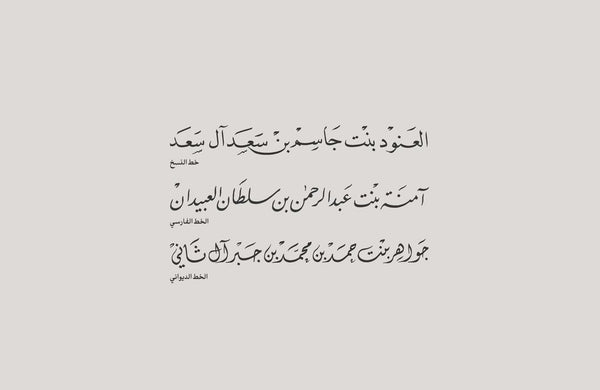 العَنوْد بنْت جَاسِم بنْ سَعَد آل سَعَد
خط النسخ
آمنَة بنْت عَبدالرحمٰن بن سلطَان العبيدانْ
الخط الفارسي
جَواهِر بنْت حمَد بن محمَّد بْن جَبْر آل ثَاني
الخط الديواني